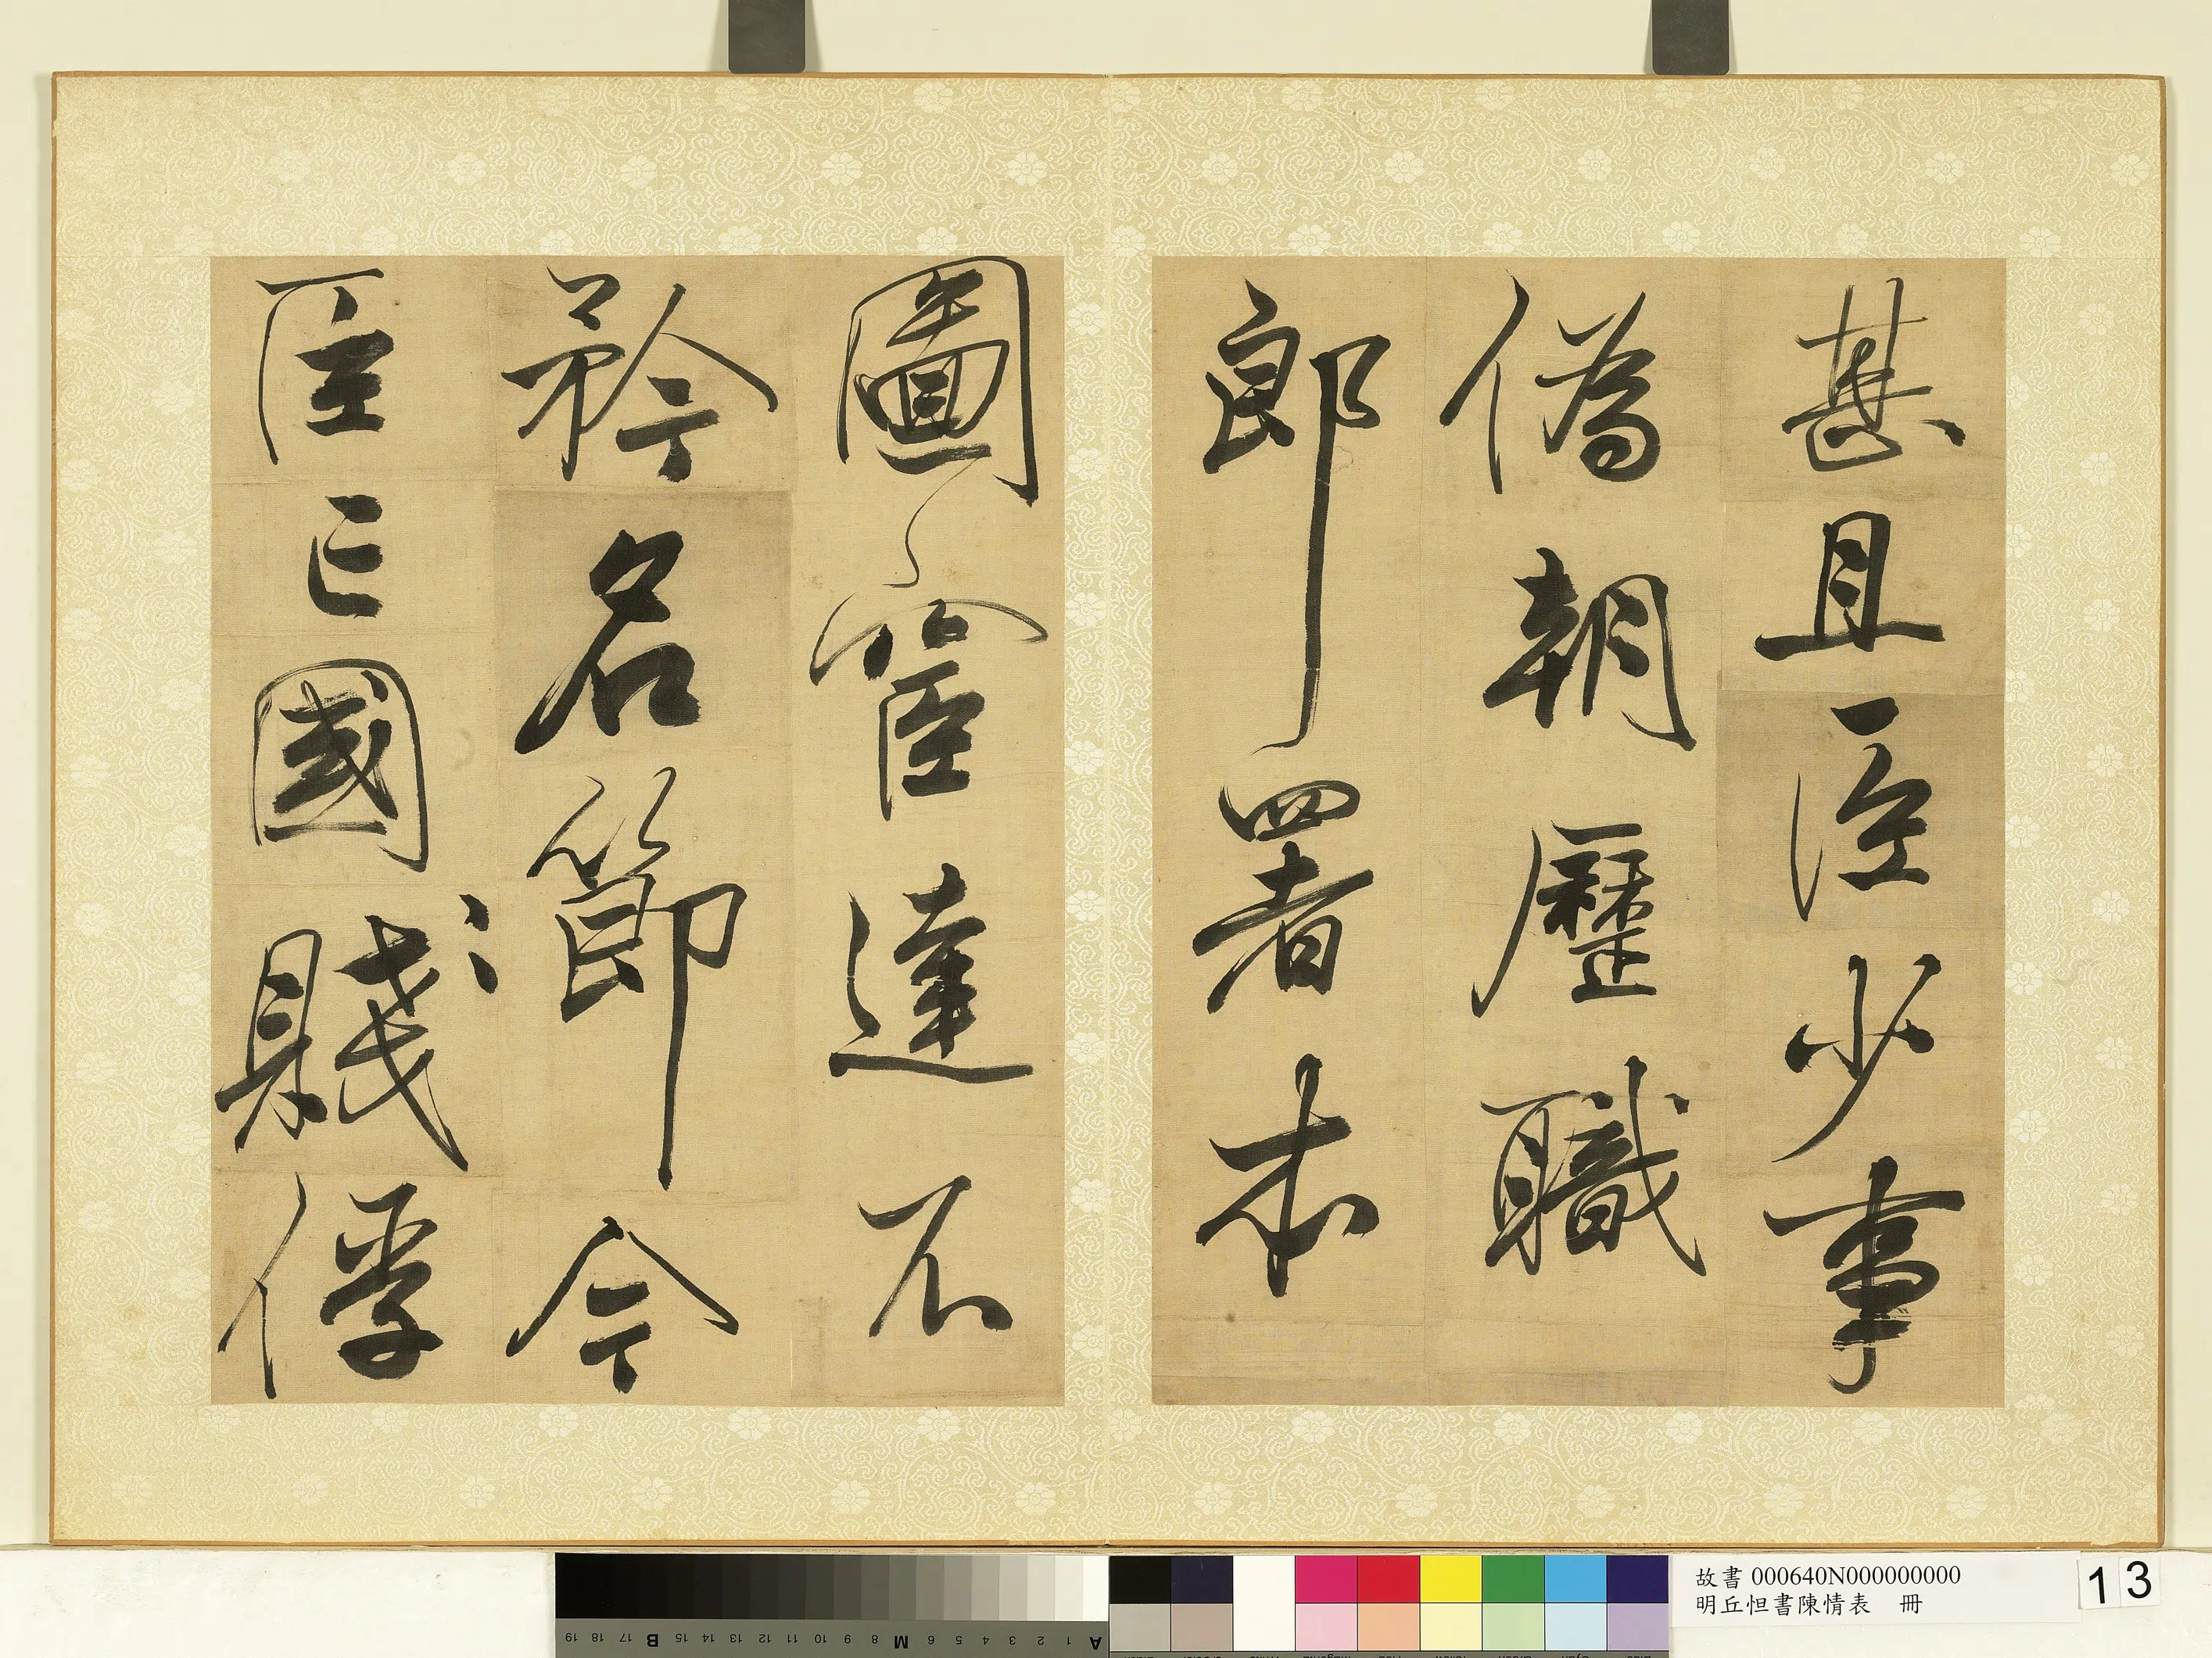 甚且臣少事
偽朝歷職
郎署本
圖宦達不
矜名節今
臣亡國賤俘
故書 000640N000000000
明丘怛書陳情表 冊
13
A 1 2 3 4 5 6 M 8 9 10 11 12 13 14 15 B 17 18 19